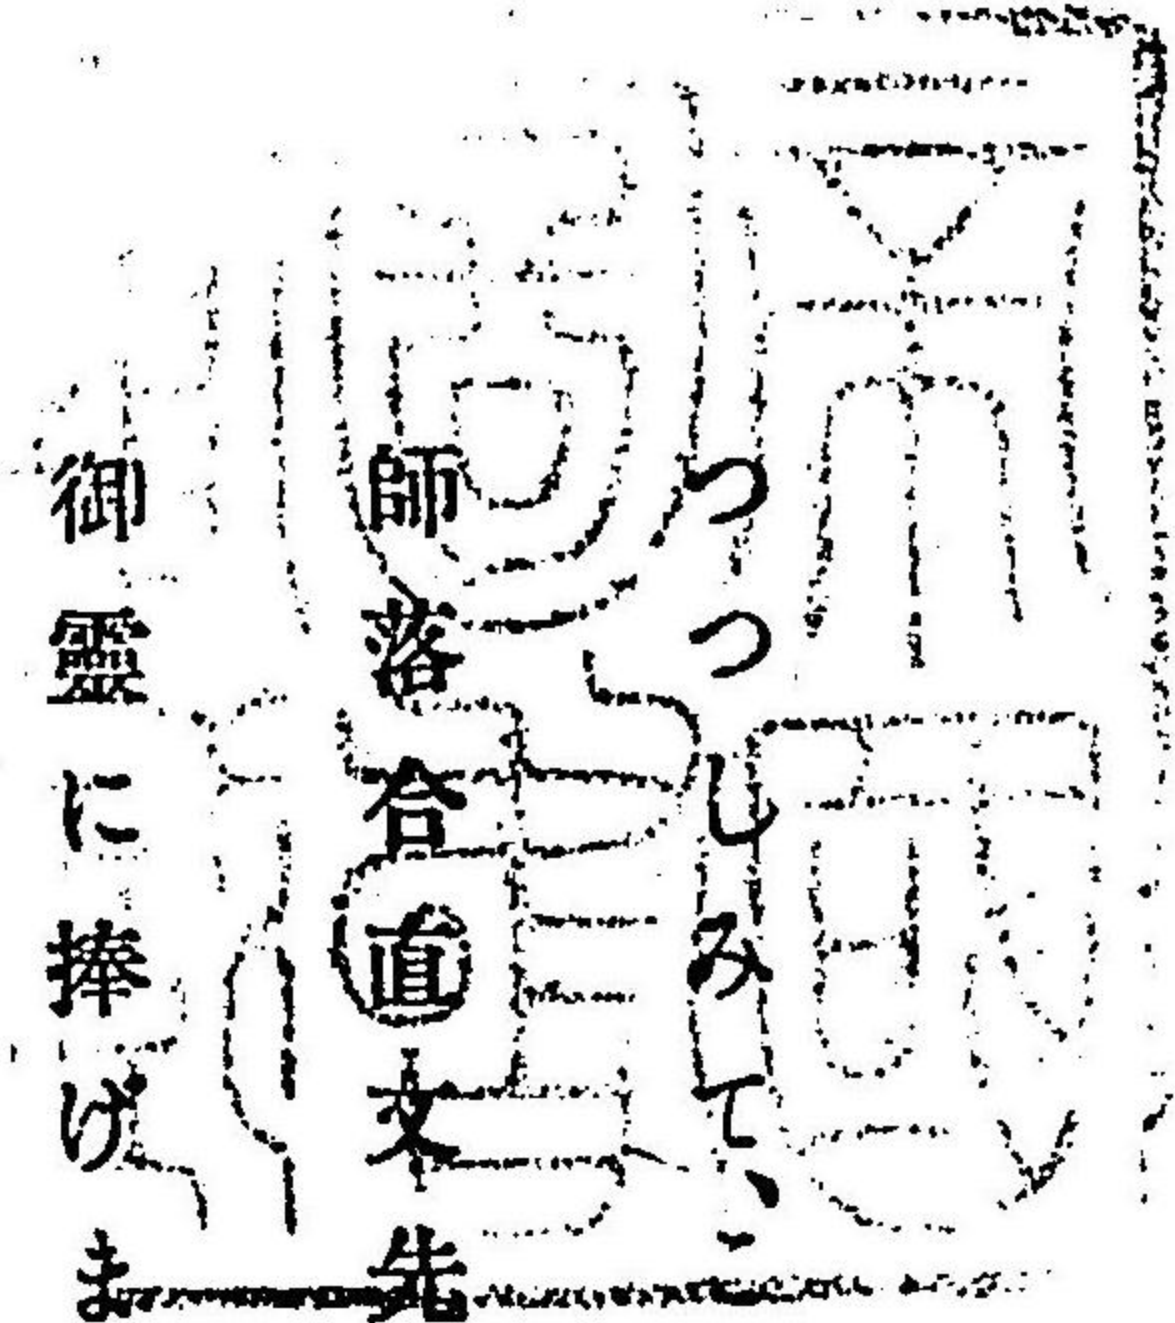 つつしみて、こ
師落合直文先
御靈に捧げま